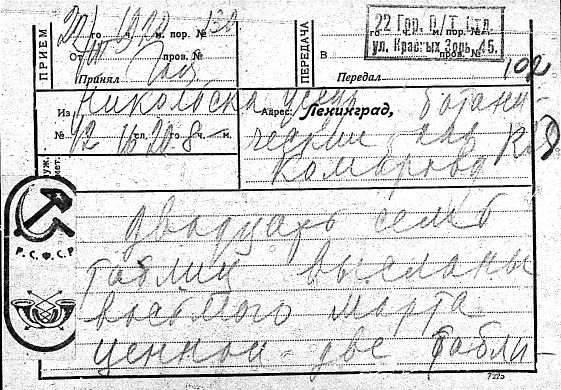 ПРИЕМ
го ч. м. пор. №
От пров. №
Принял
ПЕРЕДАЧА
22 Гор. П/Т Отд.
ул. Красных Зорь, 45.
го ч. м. пор. №
В пров. №
Передал
102
Из Никольска
№ 42 16 сл. 20 го 8 ч. — м.
Адрес: Ленинград, ботани-
ческий
Комарова
Р.С.Ф.С.Р
двадцать семь
таблиц высланы
восьмого марта
ценной две табли-
7225